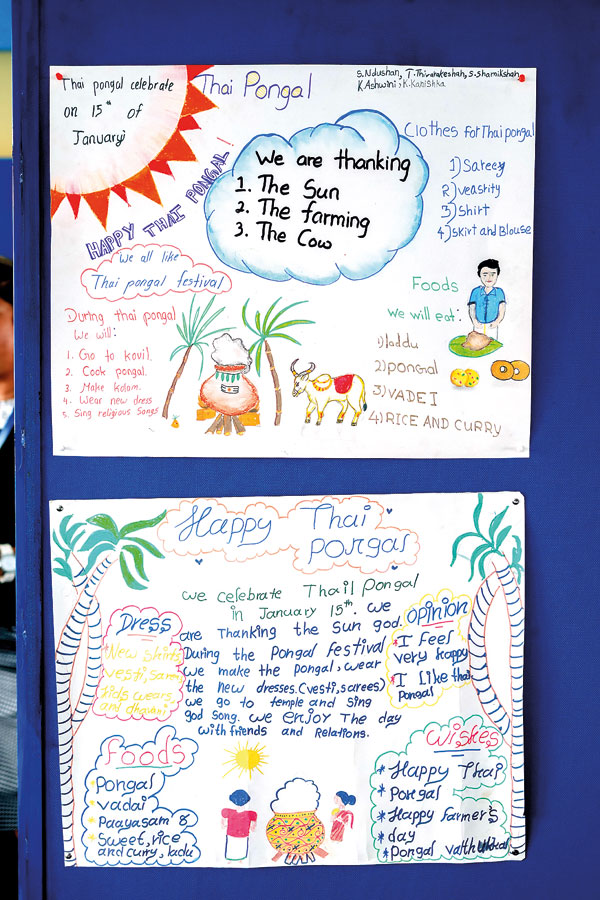 Thai pongal celebrate
on 15th of
January
Thai Pongal
S.Ndushan, T.Thivarakeshah, S.Shamikshah,
K.Ashwini, K.Kanishka
HAPPY THAI PONGAL!
We are thanking
1. The Sun
2. The farming
3. The Cow
Clothes for Thai pongal
1) Sareey
2) veasrity
3) shirt
4) skirt and Blouse
We all like
Thai pongal festival
During thai pongal
We will:
1. Go to kovil.
2. Cook pongal.
3. Make kolam.
4. Wear new dress
5. Sing religious Songs
Foods
we will eat:
1) laddu
2) pongal
3) VADEI
4) RICE AND CURRY
Happy Thai
pongal
we celebrate Thail Pongal
in January 15th. we
are Thanking the Sun god.
During the Pongal festival
we make the pongal, wear
the new dresses. (vesti, sarees)
we go to temple and sing
god song. we enjoy The day
with friends and Relations.
Dress
New shirts
vesti, saree
kids wears,
and dhavani
opinion
*I feel
very happy
*I like thai
pongal
foods
pongal
vadai
Paayasam &
Sweet, rice
and curry, ladu
wishes
*Happy Thai
*Pongal
*Happy farmer's
*day
*Pongal